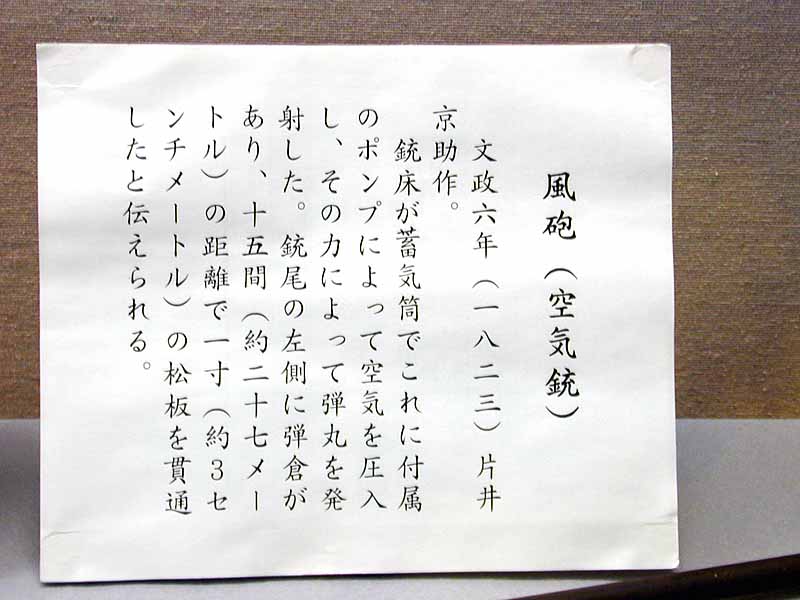 風砲（空気銃）
文政六年（一八二三）片井
京助作。
銃床が蓄気筒でこれに付属
のポンプによって空気を圧入
し、その力によって弾丸を発
射した。銃尾の左側に弾倉が
あり、十五間（約二十七メー
トル）の距離で一寸（約３セ
ンチメートル）の松板を貫通
したと伝えられる。